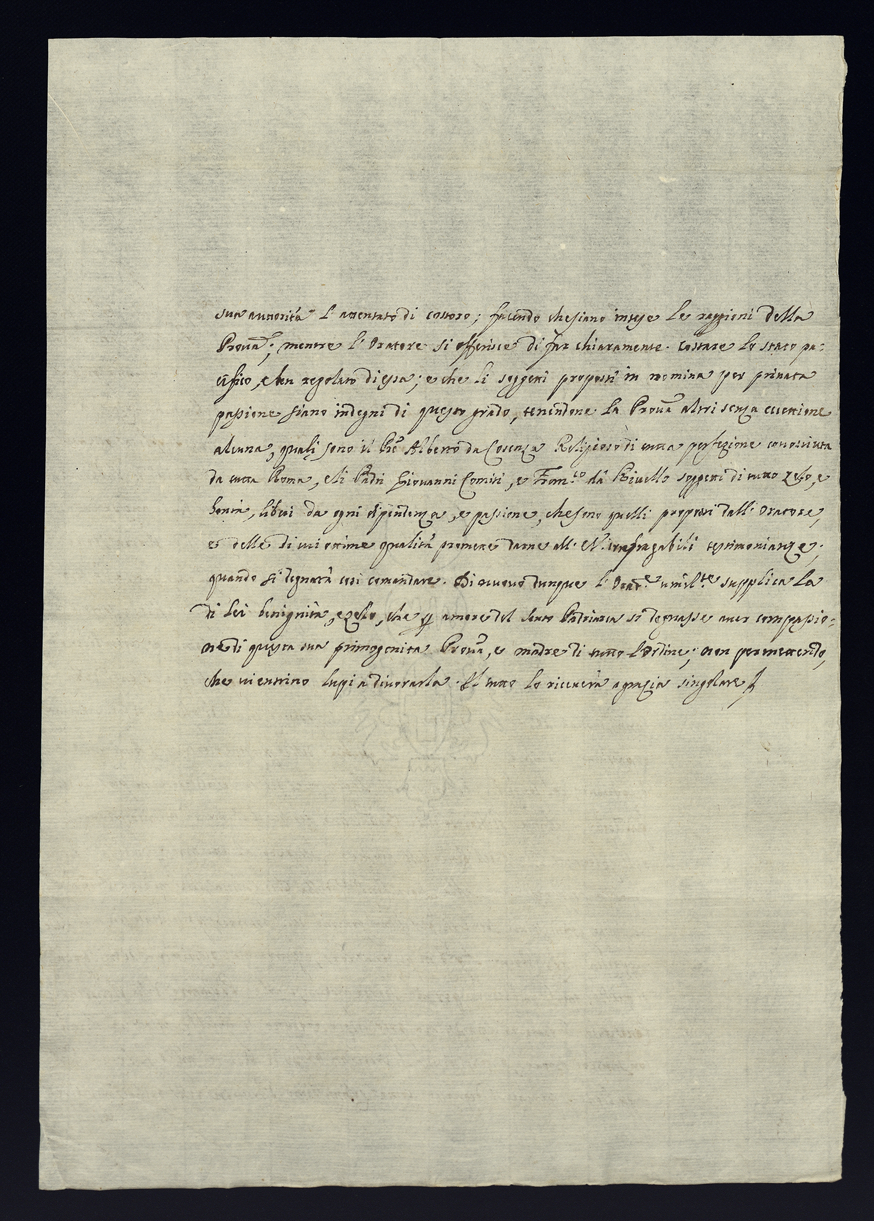 sua autorità l'attentato di costoro; facendo che siano intese le raggioni della
Prou.a; mentre l'Oratore si offerisce di far chiaramente costare lo stato pa=
cifico, e ben regolato di essa; e che li soggetti proposti in nomina per privata
passione siano indegni di questo grado, tenendone la Prou.a altri senza eccettione
alcuna, quali sono il Pre Alberto da Cosenza Religioso di tutta perfezione conosciuta
da tutta Roma, e li Padri Giovanni Comiti, e Fran.co da Rivello soggetti di tutto zelo, e
bontà, liberi da ogni dipendenza, e passione, che sono quelli proposti dall'Oratore,
e delle di cui ottime qualità promette darne all' irrefragabili testimonianze;
quando si degnarà così comandare. Di nuovo dunque l'Orat.e umil.te supplica la
di lei benignità, e zelo, che per amore del Santo Patriarca si degnasse auer compassio=
ne di questa sua primogenita Prou.a, e madre di tutto l'Ordine; non permettendo,
che ui entrino lupi a diuorarla. Il tutto lo riceuerà a grazia singolare